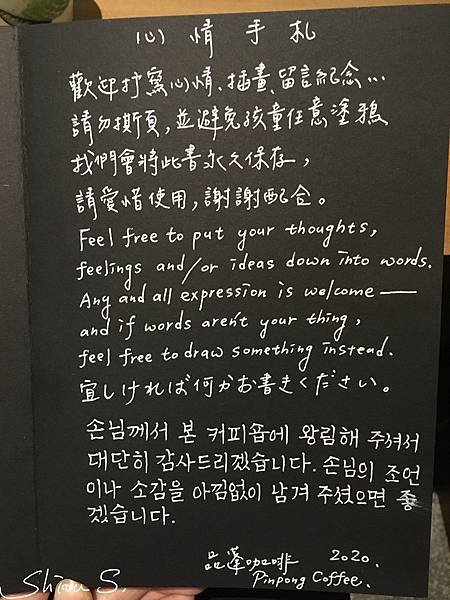 心情手札
歡迎抒寫心情、插畫、留言紀念…
請勿撕頁,並避免孩童任意塗鴉
我們會將此書永久保存,
請愛惜使用,謝謝配合。
Feel free to put your thoughts,
feelings and/or ideas down into words.
Any and all expression is welcome —
and if words aren't your thing,
feel free to draw something instead.
宜しければ何かお書きください。
손님께서 본 커피숍에 왕림해 주셔서
대단히 감사드리겠습니다. 손님의 조언
이나 소감을 아낌없이 남겨 주셨으면 좋
겠습니다.
品蓬咖啡 2020.
Pinpong Coffee.